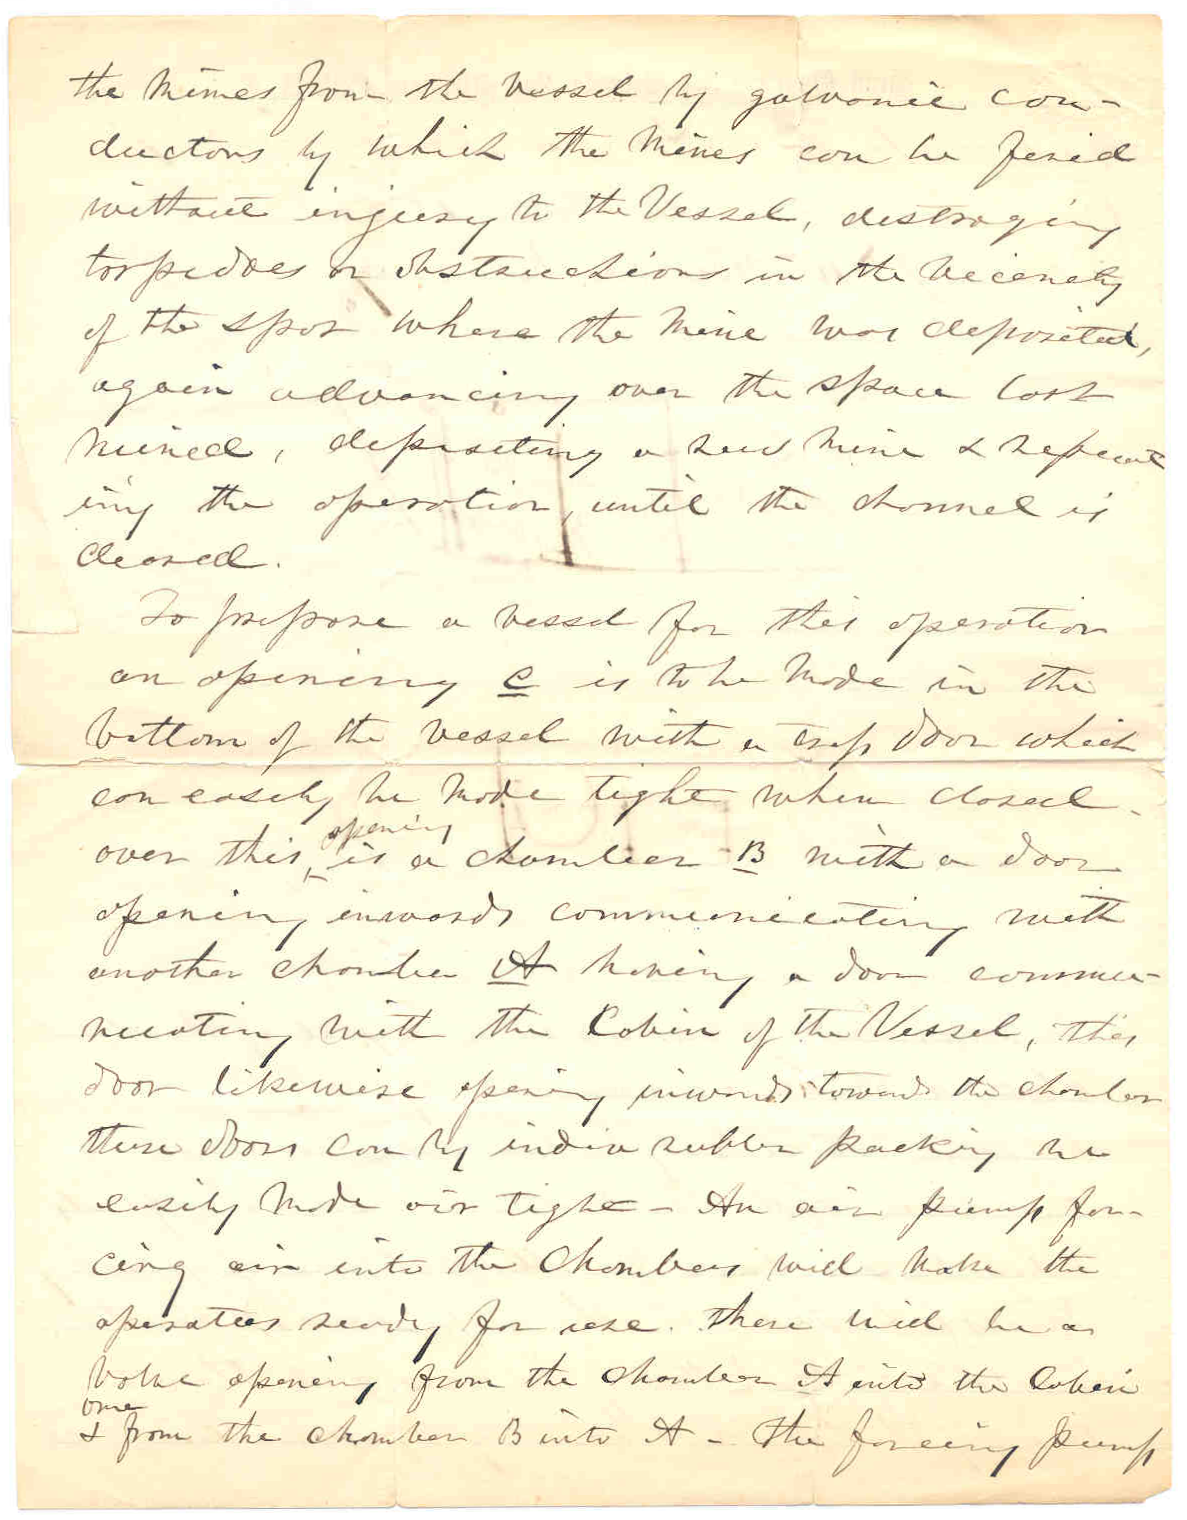 the Mines from the vessel by galvanic con-
ductors by which the Mines can be fired
without injury to the Vessel, destroying
torpedoes or obstructions in the vicinity
of the spot where the Mine was deposited,
again advancing over the space last
mined, depositing a new mine & repeat
ing the operation, until the channel is
cleared.
To prepare a vessel for this operation
an opening C is to be Made in the
bottom of the vessel with a trap door which
can easily be Made tight when closed -
opening
over this, is a chamber B with a door
opening inwards communicating with
another chamber A having a door commu-
nicating with the Cabin of the Vessel, this
door likewise opening inwards towards the chamber
these doors can by india rubber packing be
easily Made air tight - An air pump for-
cing air into the Chambers will make the
aparatus ready for use. There will be a
valve opening from the chamber A into the Cabin
one
& from the chamber B into A - The forcing pump